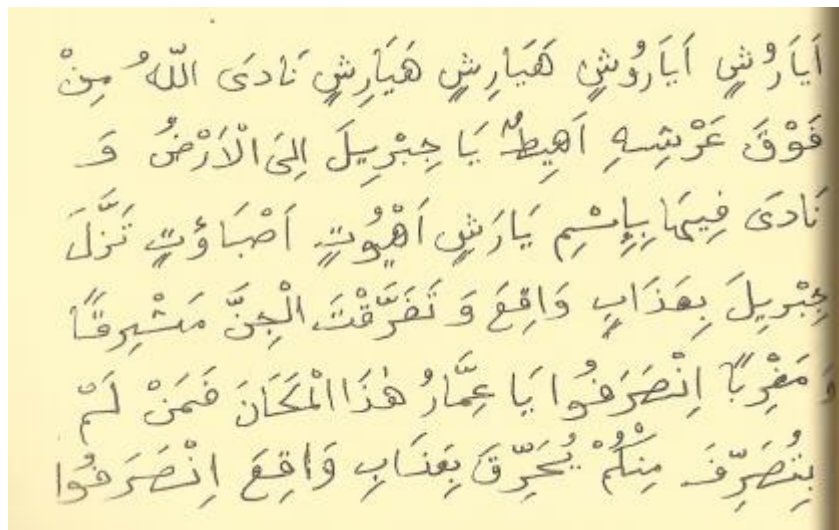 اَيَارُوْشٍ اَيَارُوْشٍ هَيَارِشٍ هَيَارِشٍ نَادَى اللّٰهُ مِنْ
فَوْقَ عَرْشِهِ اَهِيطٌ يَا جِبْرِيلَ اِلَى الْاَرْضُ وَ
نَادَى فِيهَا بِاِسْمِ يَارَشٍ اَهْيُوْتٍ اَصْبَاؤُتٍ نَزَّلَ
جِبْرِيلَ بِعَذَابٍ وَاقِعَ وَ تَفَرَّقْتَ الْجِنَّ مَشْرِقًا
وَ مَغْرِبًا اِنْصَرَفُوا يَا عِمَّارُ هٰذَا الْمَكَانَ فَمَنْ لَمْ
يَتُصَرِّفَ مِنْكُمْ يُحَرِّقَ بِعَذَابِ وَاقِعَ اِنْصَرَفُوا